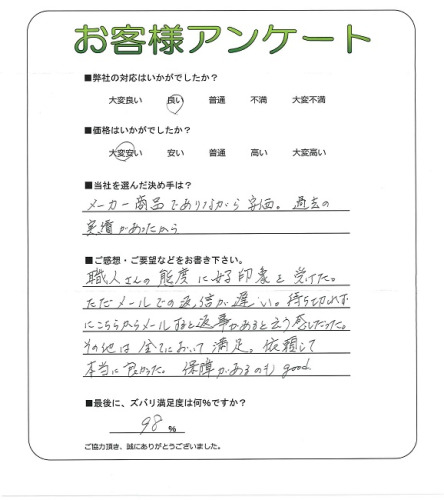 お客様アンケート
■弊社の対応はいかがでしたか?
大変良い 良い 普通 不満 大変不満
■価格はいかがでしたか?
大変安い 安い 普通 高い 大変高い
■当社を選んだ決め手は?
メーカー商品でありながら安価。過去の
実績があったから
■ご感想・ご要望などをお書き下さい。
職人さんの態度に好印象を受けた。
ただメールでの返信が遅い。待ち切れず
にこちらからメールすると返事があると云う感じだった。
その他は全てにおいて満足。依頼して
本当に良かった。保障があるのも good
■最後に、ズバリ満足度は何%ですか?
98 %
ご協力頂き、誠にありがとうございました。